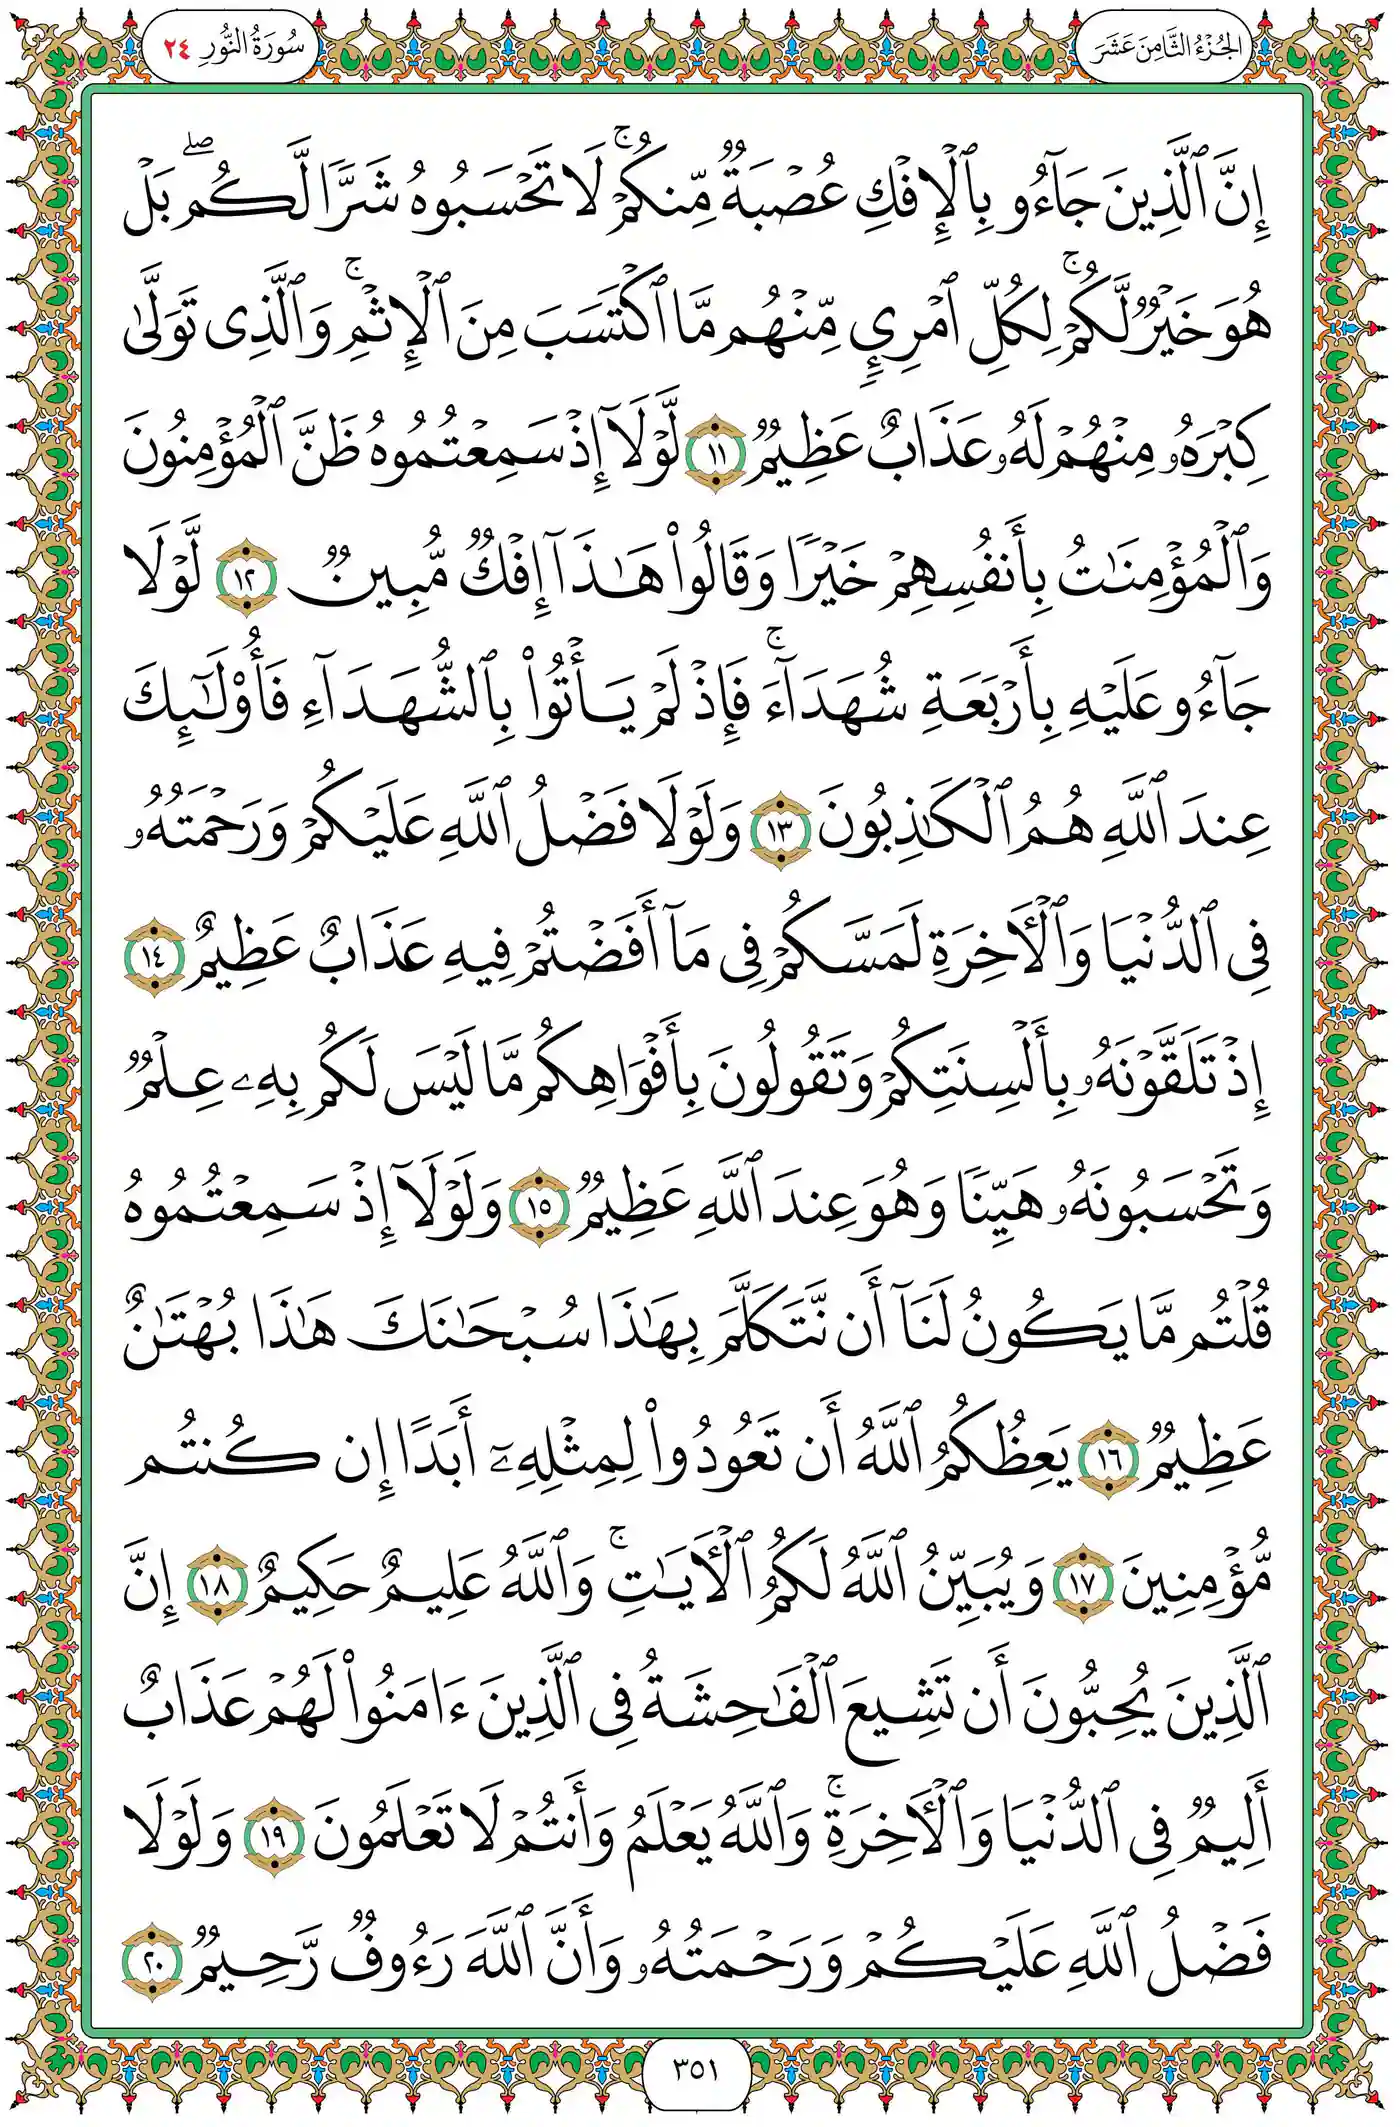 الجُزْءُ الثَّامِنَ عَشَرَ
سُورَةُ النُّورِ ٢٤
إِنَّ ٱلَّذِينَ جَآءُو بِٱلْإِفْكِ عُصْبَةٌ مِّنكُمْ ۚ لَا تَحْسَبُوهُ شَرًّا لَّكُم ۖ بَلْ
هُوَ خَيْرٌ لَّكُمْ ۚ لِكُلِّ ٱمْرِئٍ مِّنْهُم مَّا ٱكْتَسَبَ مِنَ ٱلْإِثْمِ ۚ وَٱلَّذِى تَوَلَّىٰ
كِبْرَهُۥ مِنْهُمْ لَهُۥ عَذَابٌ عَظِيمٌ ١١ لَّوْلَآ إِذْ سَمِعْتُمُوهُ ظَنَّ ٱلْمُؤْمِنُونَ
وَٱلْمُؤْمِنَٰتُ بِأَنفُسِهِمْ خَيْرًا وَقَالُوا۟ هَٰذَآ إِفْكٌ مُّبِينٌ ١٢ لَّوْلَا
جَآءُو عَلَيْهِ بِأَرْبَعَةِ شُهَدَآءَ ۚ فَإِذْ لَمْ يَأْتُوا۟ بِٱلشُّهَدَآءِ فَأُو۟لَٰٓئِكَ
عِندَ ٱللَّهِ هُمُ ٱلْكَٰذِبُونَ ١٣ وَلَوْلَا فَضْلُ ٱللَّهِ عَلَيْكُمْ وَرَحْمَتُهُۥ
فِى ٱلدُّنْيَا وَٱلْءَاخِرَةِ لَمَسَّكُمْ فِى مَآ أَفَضْتُمْ فِيهِ عَذَابٌ عَظِيمٌ ١٤
إِذْ تَلَقَّوْنَهُۥ بِأَلْسِنَتِكُمْ وَتَقُولُونَ بِأَفْوَاهِكُم مَّا لَيْسَ لَكُم بِهِۦ عِلْمٌ
وَتَحْسَبُونَهُۥ هَيِّنًا وَهُوَ عِندَ ٱللَّهِ عَظِيمٌ ١٥ وَلَوْلَآ إِذْ سَمِعْتُمُوهُ
قُلْتُم مَّا يَكُونُ لَنَآ أَن نَّتَكَلَّمَ بِهَٰذَا سُبْحَٰنَكَ هَٰذَا بُهْتَٰنٌ
عَظِيمٌ ١٦ يَعِظُكُمُ ٱللَّهُ أَن تَعُودُوا۟ لِمِثْلِهِۦٓ أَبَدًا إِن كُنتُم
مُّؤْمِنِينَ ١٧ وَيُبَيِّنُ ٱللَّهُ لَكُمُ ٱلْءَايَٰتِ ۚ وَٱللَّهُ عَلِيمٌ حَكِيمٌ ١٨ إِنَّ
ٱلَّذِينَ يُحِبُّونَ أَن تَشِيعَ ٱلْفَٰحِشَةُ فِى ٱلَّذِينَ ءَامَنُوا۟ لَهُمْ عَذَابٌ
أَلِيمٌ فِى ٱلدُّنْيَا وَٱلْءَاخِرَةِ ۚ وَٱللَّهُ يَعْلَمُ وَأَنتُمْ لَا تَعْلَمُونَ ١٩ وَلَوْلَا
فَضْلُ ٱللَّهِ عَلَيْكُمْ وَرَحْمَتُهُۥ وَأَنَّ ٱللَّهَ رَءُوفٌ رَّحِيمٌ ٢٠
٣٥١